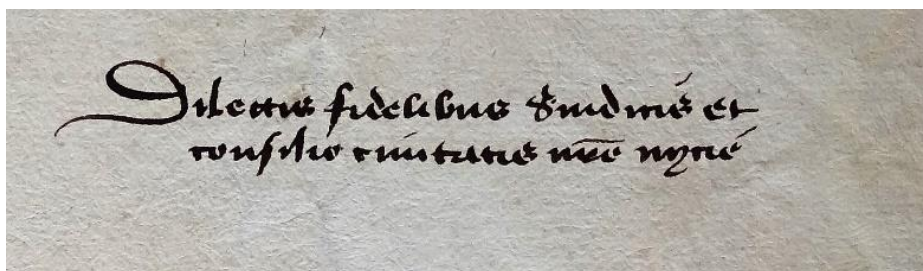 Dilectis fidelibus Sindicis et
consilio civitatis nr̄e nycie